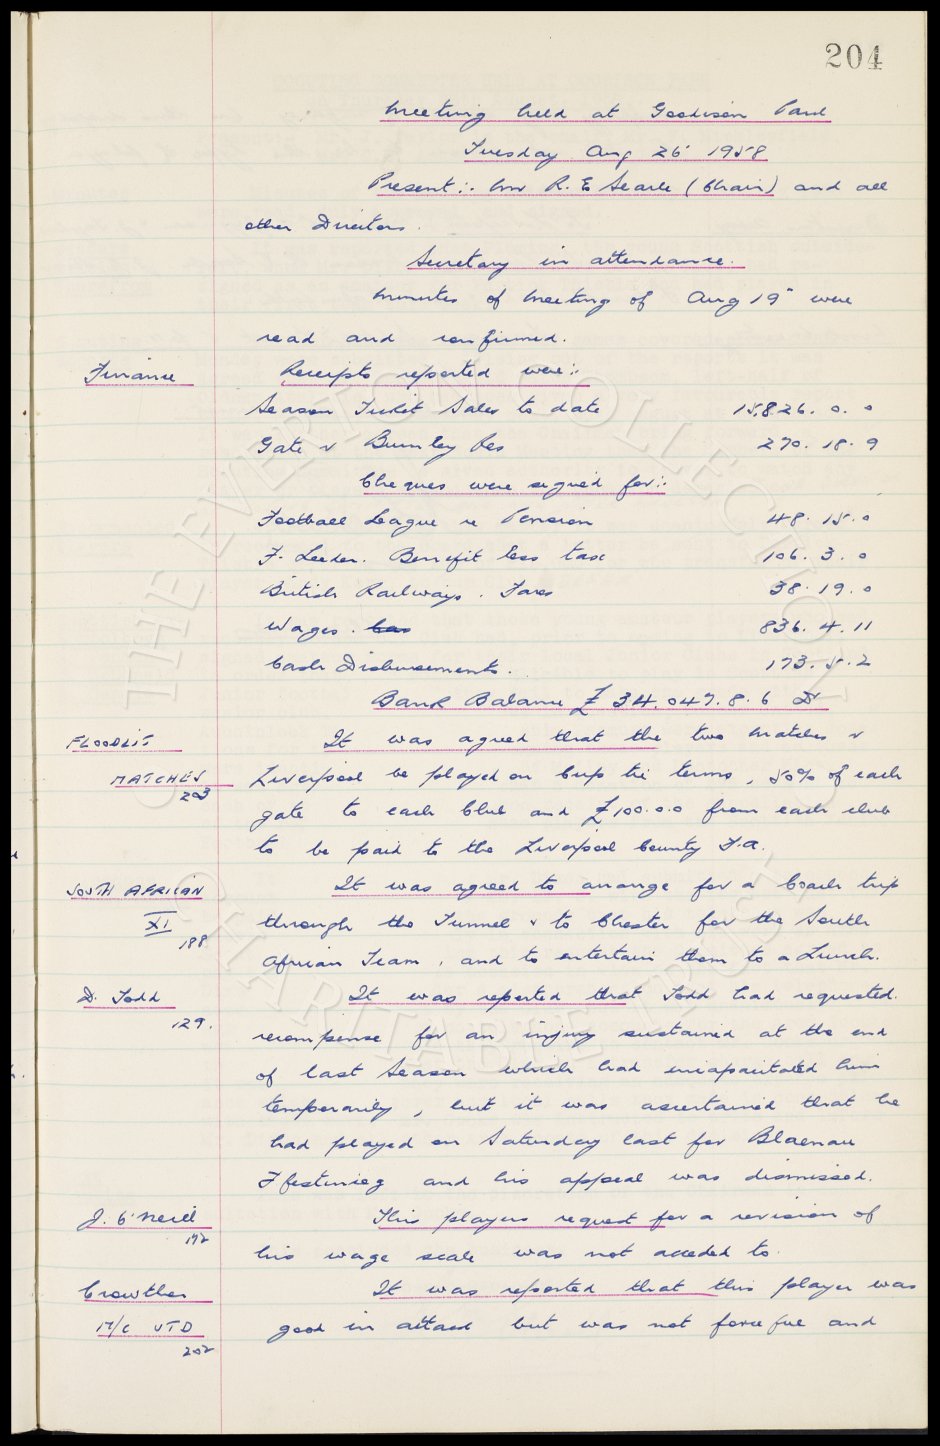 204
Meeting held at Goodison Park
Tuesday Aug 26" 1958
Present:- Mr R. E Searle (Chair) and all
other Directors.
Secretary in attendance.
Minutes of Meeting of Aug 19" were
read and confirmed.
Finance Receipts reported were:-
Season Ticket Sales to date 15,826. 0. 0
Gate v Burnley Res 270. 18. 9
Cheques were signed for:-
Football League re Pension 48. 15. 0
F. Leeder. Benefit less tax 106. 3. 0
British Railways. Fares 38. 19. 0
Wages. 836. 4. 11
Cash Disbursements. 173. 5. 2
Bank Balance £34,047. 8. 6 Dr
FLOODLIT It was agreed that the two matches v
MATCHES Liverpool be played on Cup tie terms, 50% of each
203
gate to each Club and £100.0.0 from each club
to be paid to the Liverpool County F.A.
SOUTH AFRICAN It was agreed to arrange for a Coach trip
XI through the Tunnel & to Chester for the South
188
African Team, and to entertain them to a Lunch.
D. Todd It was reported that Todd had requested
129. recompense for an injury sustained at the end
of last Season which had incapacitated him
temporarily, but it was ascertained that he
had played on Saturday last for Blaenau
Ffestiniog and his appeal was dismissed.
J. O'Neill This players request for a revision of
192
his wage scale was not acceded to.
Crowther It was reported that this player was
M/C UTD good in attack but was not forceful and
202
THE EVERTON COLLECTION
CHARITABLE TRUST